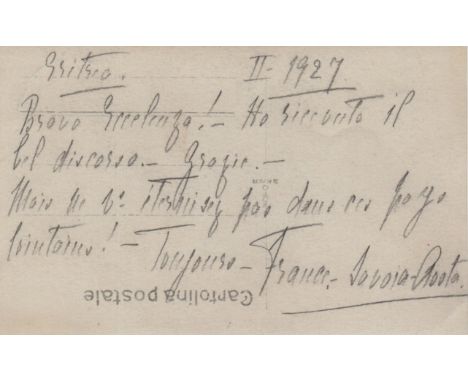 Eritrea. II - 1927.
Bravo Eccelenza! - Ho ricevuto il
bel discorso. - Grazie. -
Mais ne vs. éternisez pas dans ces pays
lointains! - Toujours - France. - Savoia-Aosta.
Cartolina postale